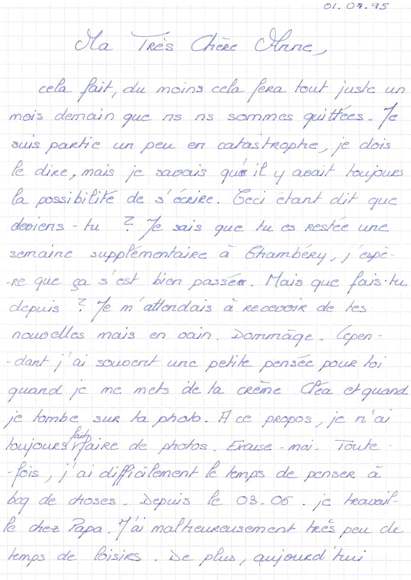 01.07.95
Ma Très Chère Anne,
cela fait, du moins cela fera tout juste un
mois demain que ns ns sommes quittées. Je
suis partie un peu en catastrophe, je dois
le dire, mais je savais qu'il y avait toujours
la possibilité de s'écrire. Ceci étant dit que
deviens-tu ? Je sais que tu es restée une
semaine supplémentaire à Chambéry, j'espè-
-re que ça s'est bien passé. Mais que fais-tu
depuis ? Je m'attendais à recevoir de tes
nouvelles mais en vain. Dommage. Cepen-
-dant j'ai souvent une petite pensée pour toi
quand je me mets de la crème Cléa et quand
je tombe sur ta photo. A ce propos, je n'ai
toujours faire de photos. Excuse-moi. Toute-
-fois, j'ai difficilement le temps de penser à
bcq de choses. Depuis le 03.06. je travail-
le chez Papa. J'ai malheureusement très peu de
temps de loisirs. De plus, aujourd'hui